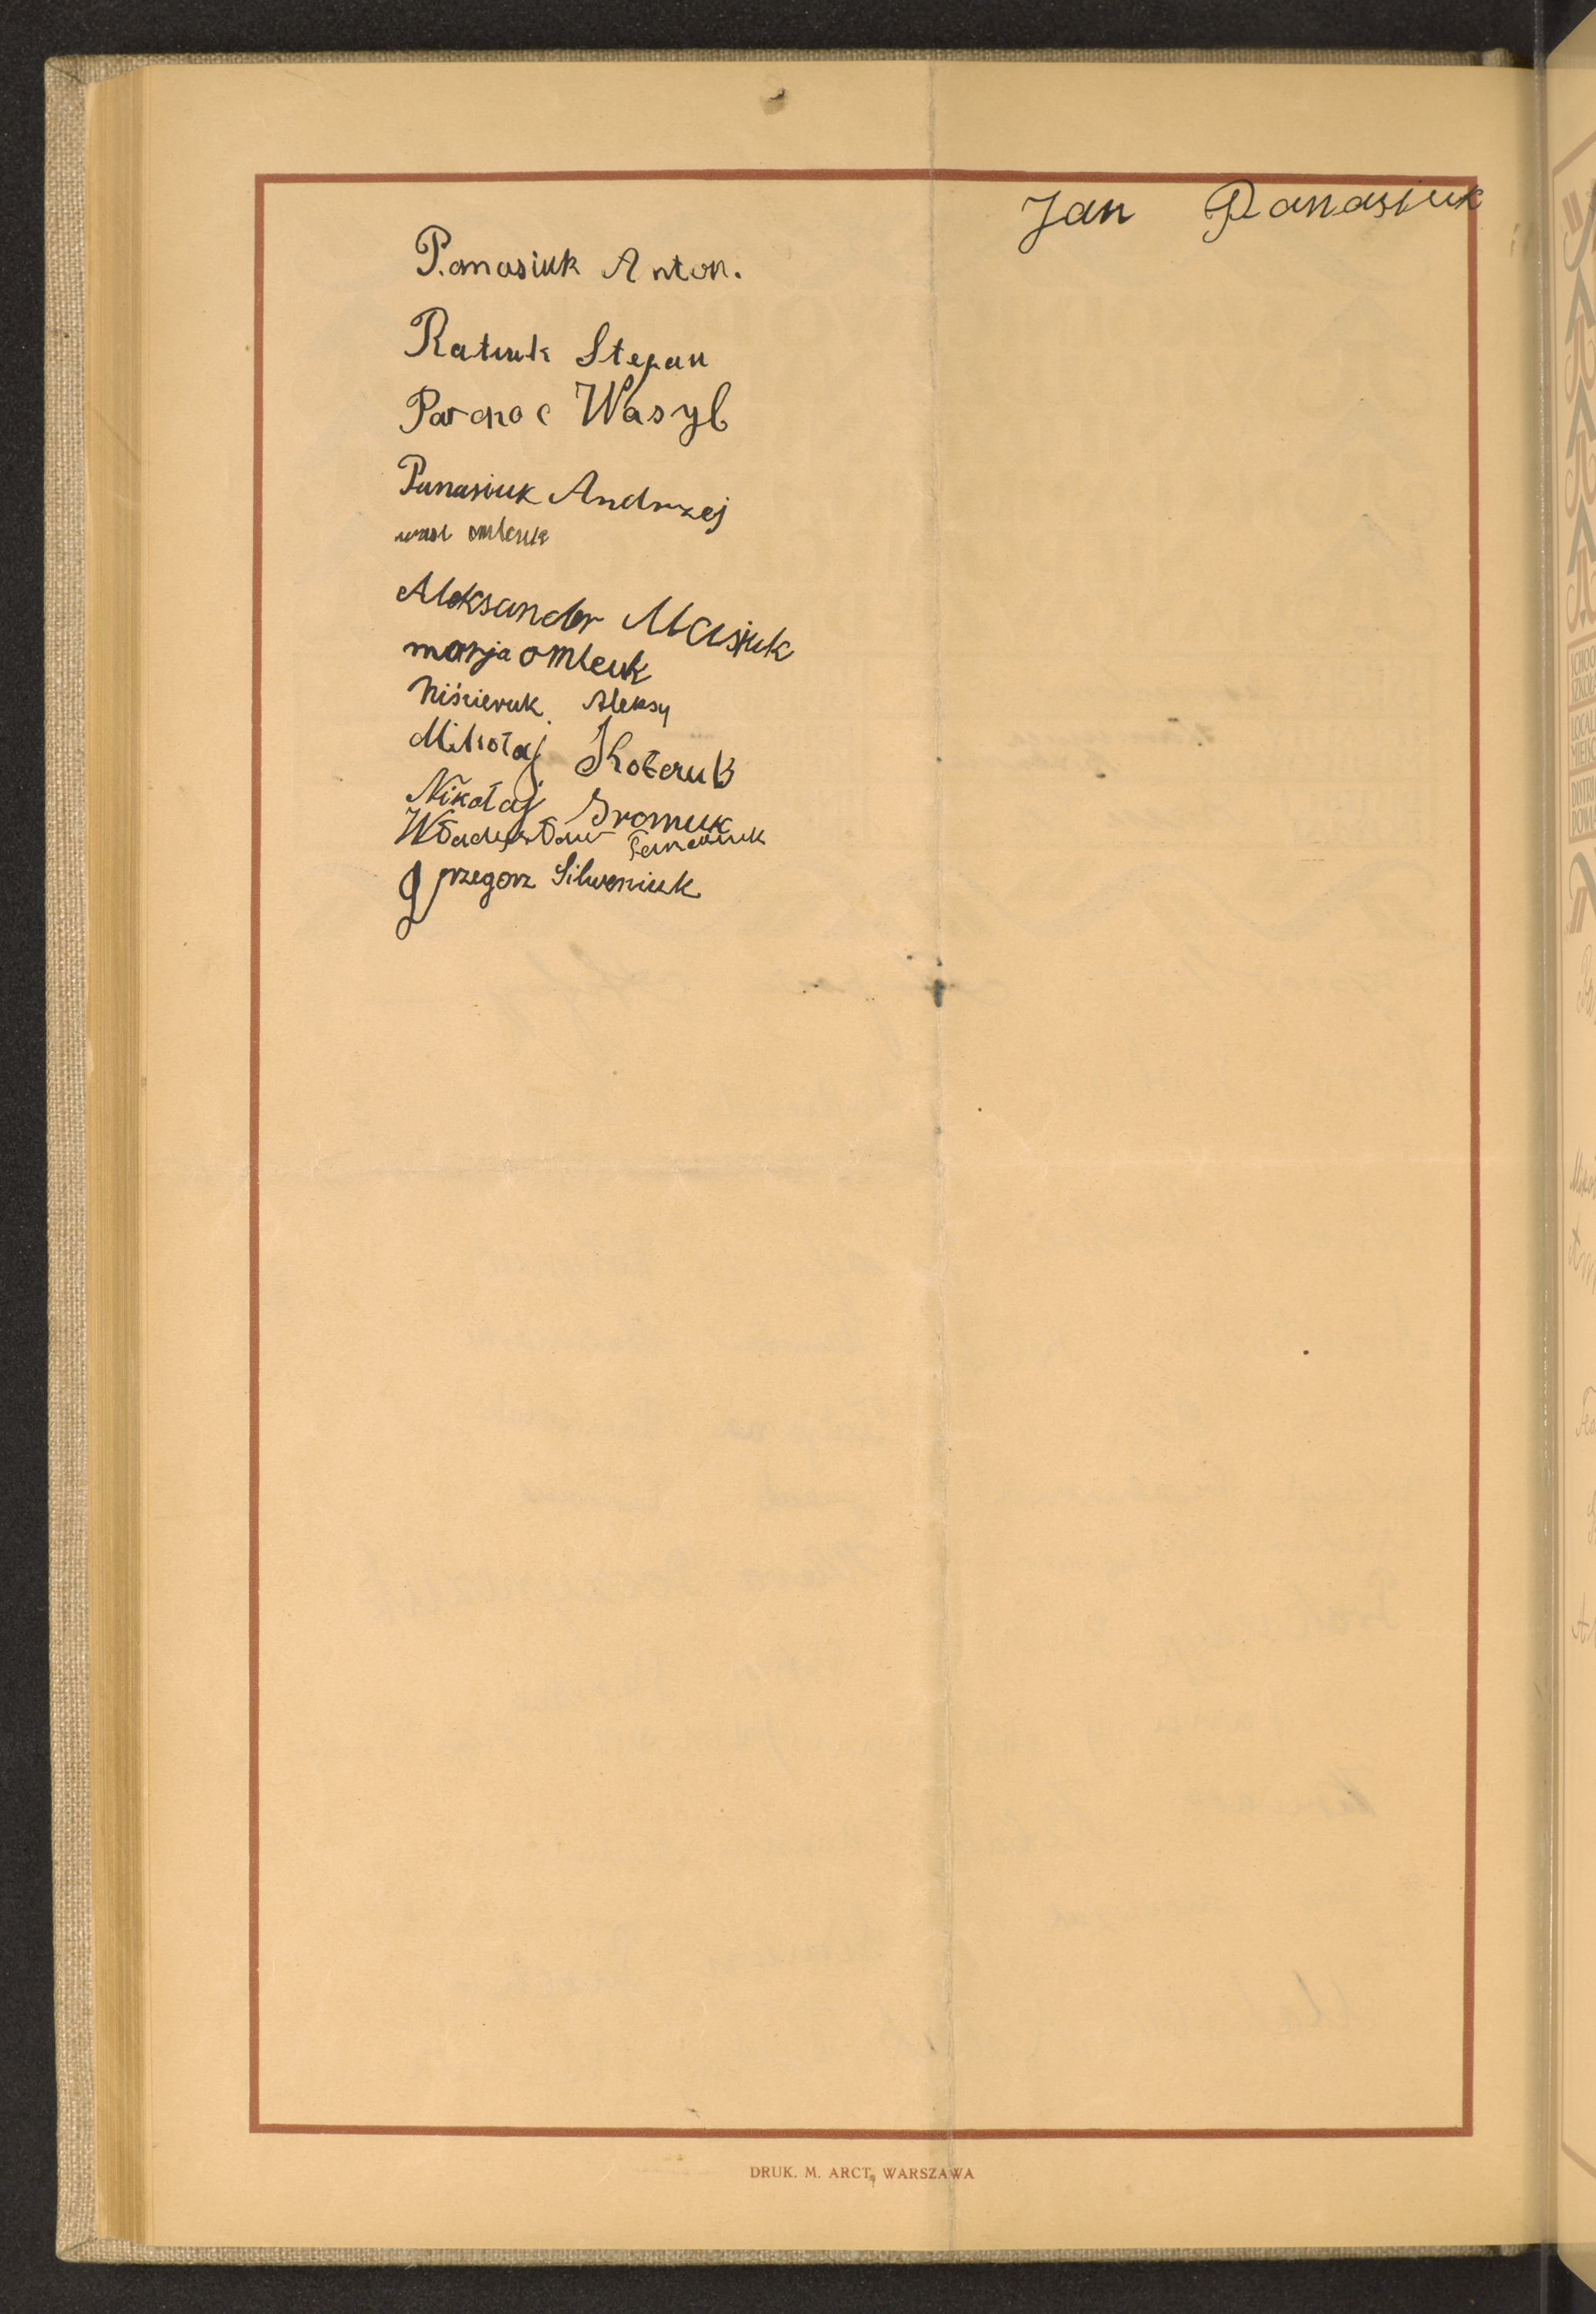 Jan Panasiuk
Panasiuk Anton.
Ratuk Stepan
Parchoc Wasyl
Panasiuk Andrzej
wasl omleuk
Aleksander Masiuk
marja omleuk
Niścieruk Aleksy
Mikołaj Koteruk
Nikołaj Gromuk
Władysław Panasiuk
Grzegorz Silwoniuk
DRUK. M. ARCT, WARSZAWA